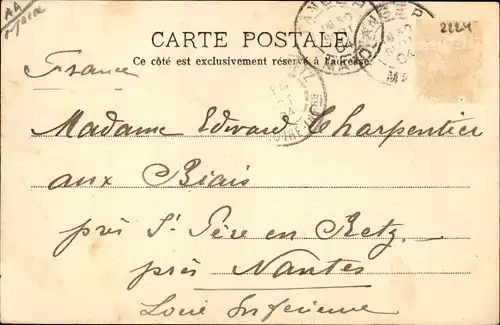 AA
2224
CARTE POSTALE
Ce côté est exclusivement réservé à l'adresse.
France
Madame Edward Charpentier
aux Biais
près St Père en Retz
près Nantes
Loire Inférieure
TANGER
MAROC
04